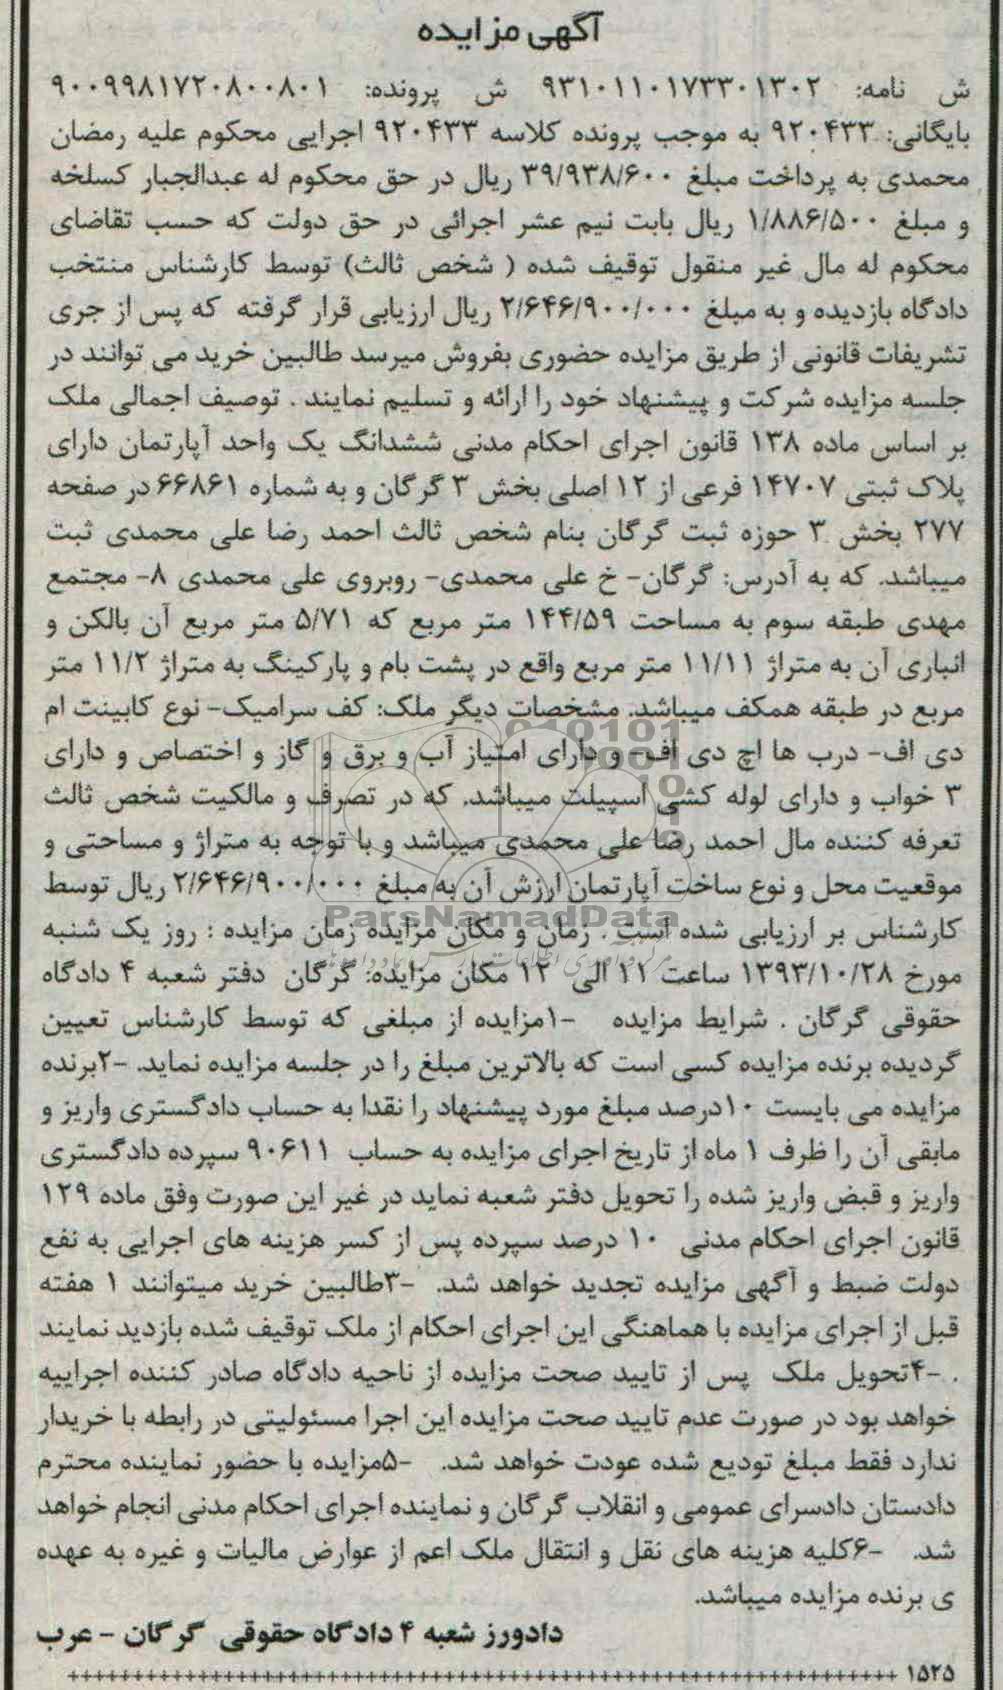 آگهی مزایده
ش نامه: ۹۳۱۰۱۱۰۱۷۳۳۰۱۳۰۲ ش پرونده: ۹۰۰۹۹۸۱۷۲۰۸۰۰۸۰۱
بایگانی: ۹۲۰۴۳۳ به موجب پرونده کلاسه ۹۲۰۴۳۳ اجرایی محکوم علیه رمضان
محمدی به پرداخت مبلغ ۳۹/۹۳۸/۶۰۰ ریال در حق محکوم له عبدالجبار کسلخه
و مبلغ ۱/۸۸۶/۵۰۰ ریال بابت نیم عشر اجرائی در حق دولت که حسب تقاضای
محکوم له مال غیر منقول توقیف شده ( شخص ثالث) توسط کارشناس منتخب
دادگاه بازدیده و به مبلغ ۲/۶۴۶/۹۰۰/۰۰۰ ریال ارزیابی قرار گرفته که پس از جری
تشریفات قانونی از طریق مزایده حضوری بفروش میرسد طالبین خرید می توانند در
جلسه مزایده شرکت و پیشنهاد خود را ارائه و تسلیم نمایند . توصیف اجمالی ملک
بر اساس ماده ۱۳۸ قانون اجرای احکام مدنی ششدانگ یک واحد آپارتمان دارای
پلاک ثبتی ۱۴۷۰۷ فرعی از ۱۲ اصلی بخش ۳ گرگان و به شماره ۶۶۸۶۱ در صفحه
۲۷۷ بخش ۳ حوزه ثبت گرگان بنام شخص ثالث احمد رضا علی محمدی ثبت
میباشد. که به آدرس: گرگان- خ علی محمدی- روبروی علی محمدی ۸- مجتمع
مهدی طبقه سوم به مساحت ۱۴۴/۵۹ متر مربع که ۵/۷۱ متر مربع آن بالکن و
انباری آن به متراژ ۱۱/۱۱ متر مربع واقع در پشت بام و پارکینگ به متراژ ۱۱/۲ متر
مربع در طبقه همکف میباشد. مشخصات دیگر ملک: کف سرامیک- نوع کابینت ام
دی اف- درب ها اچ دی اف- و دارای امتیاز آب و برق و گاز و اختصاص و دارای
۳ خواب و دارای لوله کشی اسپیلت میباشد. که در تصرف و مالکیت شخص ثالث
تعرفه کننده مال احمد رضا علی محمدی میباشد و با توجه به متراژ و مساحتی و
موقعیت محل و نوع ساخت آپارتمان ارزش آن به مبلغ ۲/۶۴۶/۹۰۰/۰۰۰ ریال توسط
ParsNamadData
کارشناس بر ارزیابی شده است . زمان و مکان مزایده زمان مزایده : روز یک شنبه
مورخ ۱۳۹۳/۱۰/۲۸ ساعت ۱۱ الی ۱۲ مکان مزایده: گرگان دفتر شعبه ۴ دادگاه
حقوقی گرگان . شرایط مزایده ۱-مزایده از مبلغی که توسط کارشناس تعیین
گردیده برنده مزایده کسی است که بالاترین مبلغ را در جلسه مزایده نماید. ۲-برنده
مزایده می بایست ۱۰درصد مبلغ مورد پیشنهاد را نقدا به حساب دادگستری واریز و
مابقی آن را ظرف ۱ ماه از تاریخ اجرای مزایده به حساب ۹۰۶۱۱ سپرده دادگستری
واریز و قبض واریز شده را تحویل دفتر شعبه نماید در غیر این صورت وفق ماده ۱۲۹
قانون اجرای احکام مدنی ۱۰ درصد سپرده پس از کسر هزینه های اجرایی به نفع
دولت ضبط و آگهی مزایده تجدید خواهد شد. ۳-طالبین خرید میتوانند ۱ هفته
قبل از اجرای مزایده با هماهنگی این اجرای احکام از ملک توقیف شده بازدید نمایند
. ۴-تحویل ملک پس از تایید صحت مزایده از ناحیه دادگاه صادر کننده اجراییه
خواهد بود در صورت عدم تایید صحت مزایده این اجرا مسئولیتی در رابطه با خریدار
ندارد فقط مبلغ تودیع شده عودت خواهد شد. ۵-مزایده با حضور نماینده محترم
دادستان دادسرای عمومی و انقلاب گرگان و نماینده اجرای احکام مدنی انجام خواهد
شد. ۶-کلیه هزینه های نقل و انتقال ملک اعم از عوارض مالیات و غیره به عهده
ی برنده مزایده میباشد.
دادورز شعبه ۴ دادگاه حقوقی گرگان - عرب
۱۵۲۵